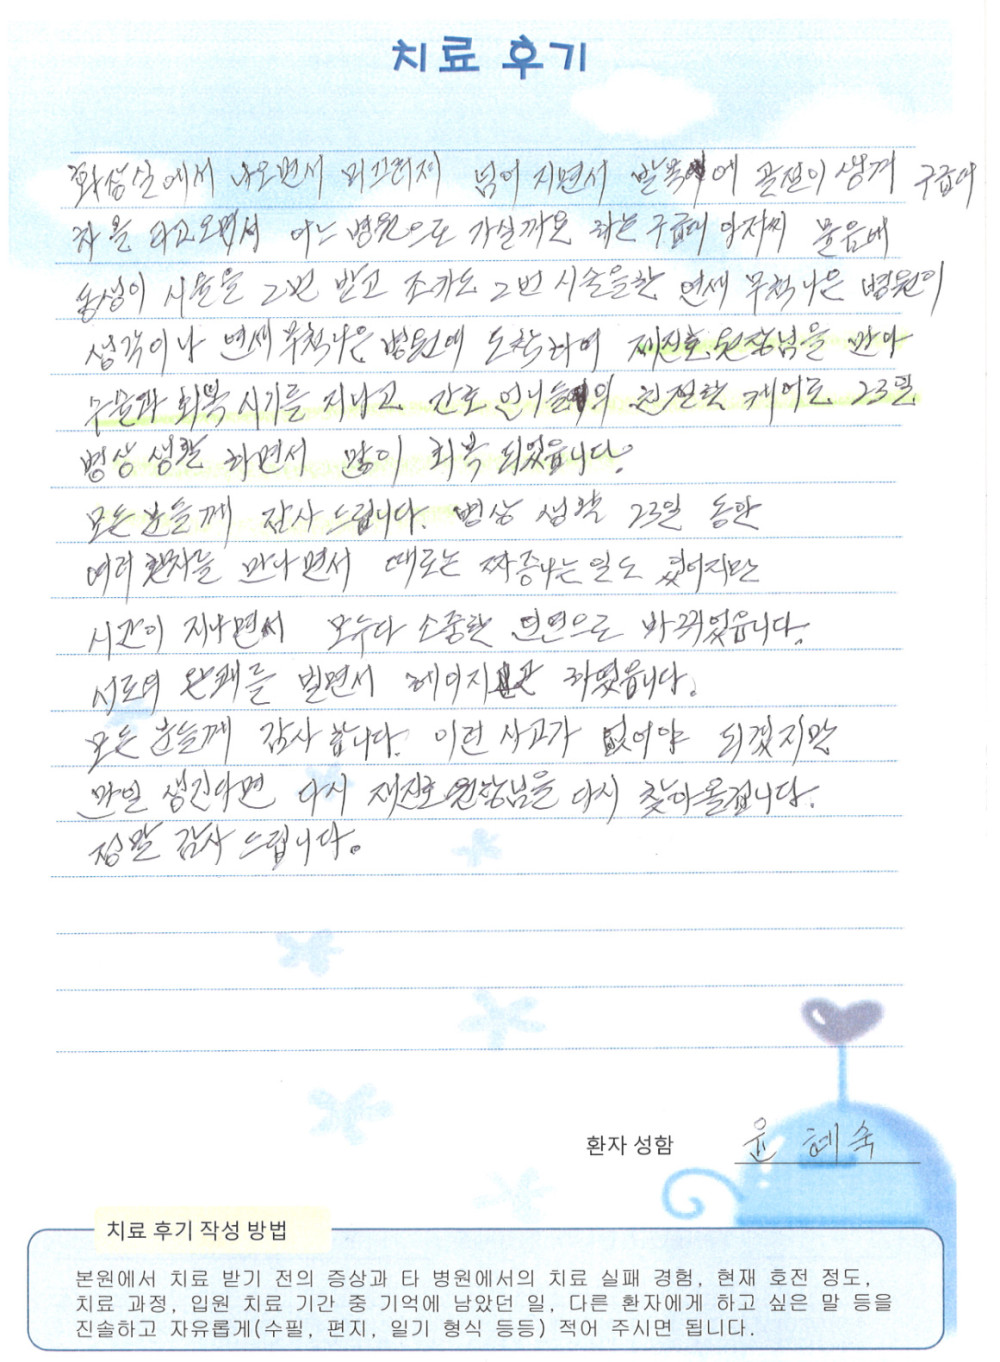 치료 후기
화장실에서 나오면서 미끄러져 넘어 지면서 발목에 골절이 생겨 구급대
차을 타고오면서 어느 병원으로 가실까요 하는 구급대 아저씨 물음에
동생이 시술을 2번 받고 조카도 2번 시술을한 연세 무척나은 병원이
생각이나 연세무척나은병원에 도착하여 제진호 원장님을 만나
수술과 회복 시기를 지나고 간호 언니들의 친절한 케어로 23일
병상 생활 하면서 많이 회복 되었읍니다.
모든 분들께 감사 드립니다. 병상 생활 23일 동안
여러 환자들 만나면서 때로는 짜증나는일도 있어지만
시간이 지나면서 모두다 소중한 인연으로 바뀌었읍니다.
서로의 완쾌를 빌면서 헤어지 하였읍니다.
모든 분들께 감사 합니다. 이런 사고가 없어야 되겠지만
만일 생긴다면 다시 제진호원장님을 다시 찾아올겁니다.
정말 감사 드립니다.
환자 성함 윤 혜 숙
치료 후기 작성 방법
본원에서 치료 받기 전의 증상과 타 병원에서의 치료 실패 경험, 현재 호전 정도,
치료 과정, 입원 치료 기간 중 기억에 남았던 일, 다른 환자에게 하고 싶은 말 등을
진솔하고 자유롭게(수필, 편지, 일기 형식 등등) 적어 주시면 됩니다.